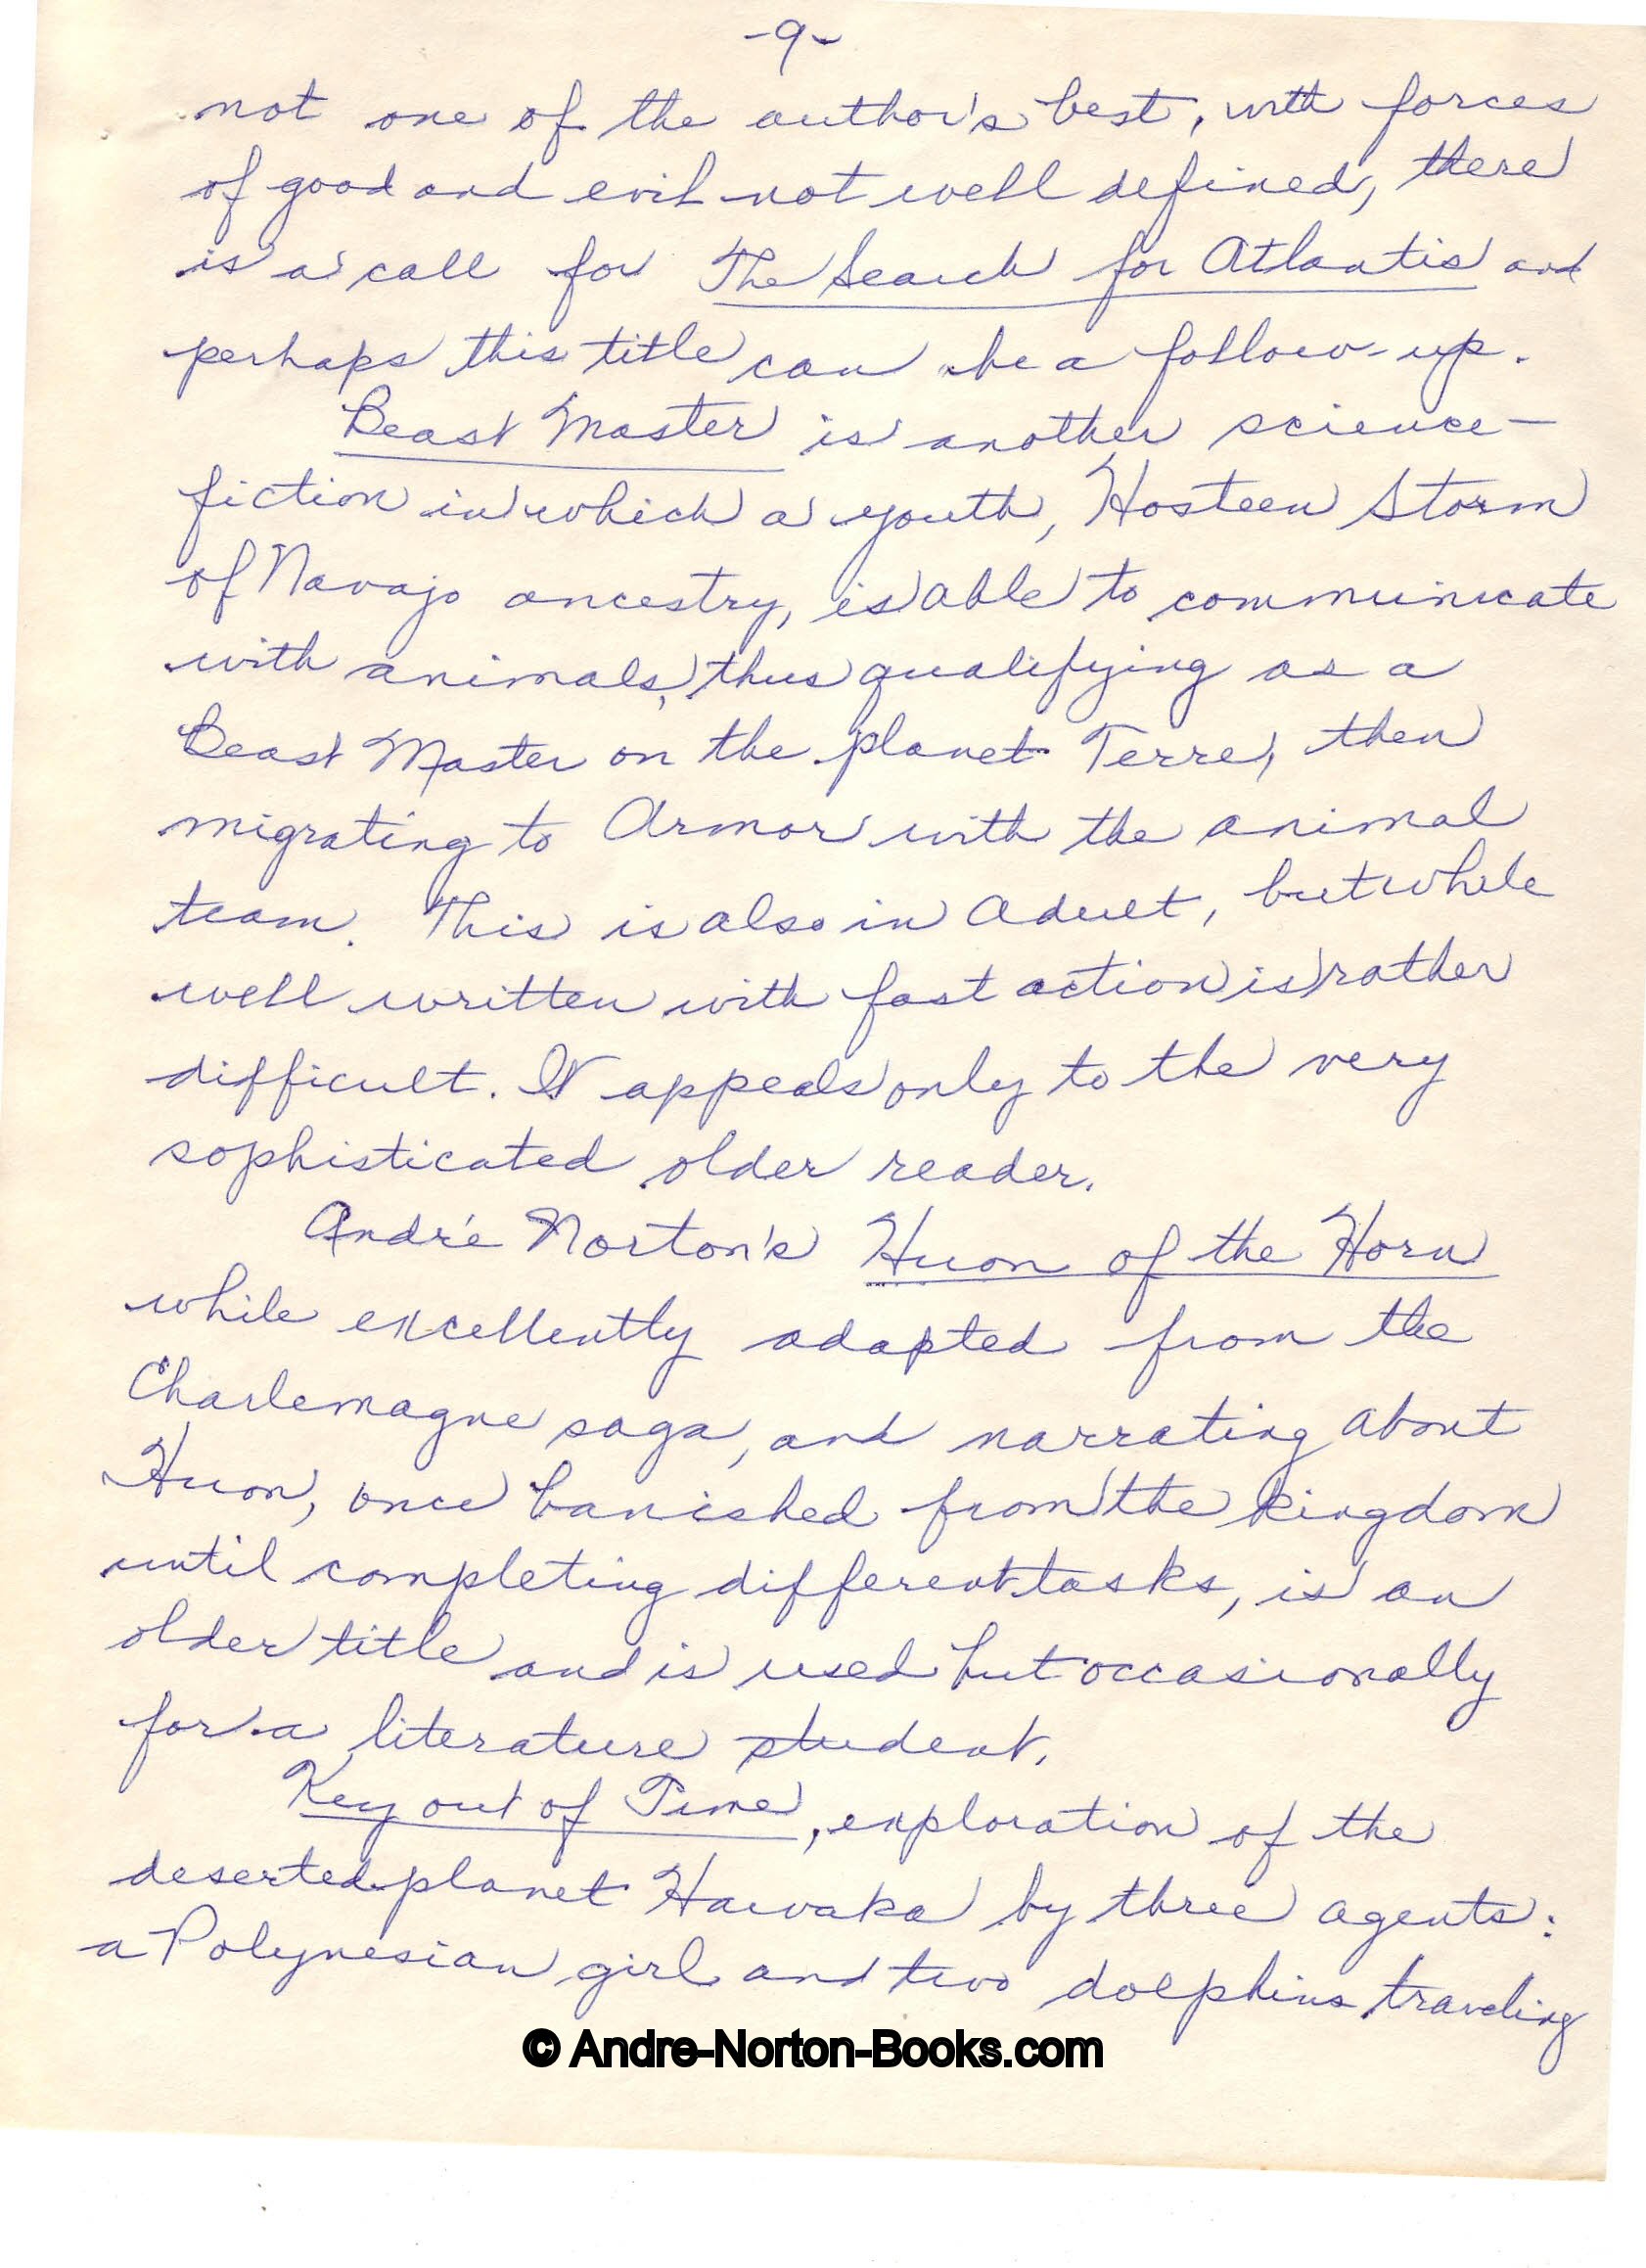 -9-
not one of the author's best, with forces
of good and evil not well defined, there
is a call for The Search for Atlantis and
perhaps this title can be a follow-up.
Beast Master is another science-
fiction in which a youth, Hosteen Storm
of Navajo ancestry, is able to communicate
with animals, thus qualifying as a
Beast Master on the planet Terre, then
migrating to Armor with the animal
team. This is also in Adult, but while
well written with fast action is rather
difficult. It appeals only to the very
sophisticated older reader.
André Norton's Huon of the Horn
while excellently adapted from the
Charlemagne saga, and narrating about
Huon, once banished from the kingdom
until completing different tasks, is an
older title and is used but occasionally
for a literature student.
Key out of Time, exploration of the
deserted planet Hawaka by three agents:
a Polynesian girl and two dolphins traveling
© Andre-Norton-Books.com